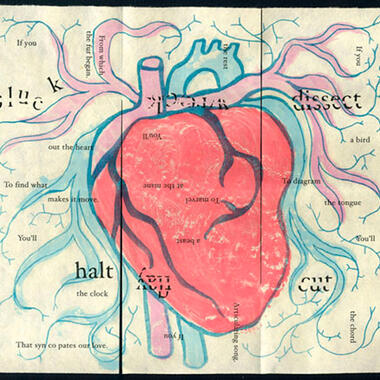 If you
pluck
out the heart
To find what
makes it move.
You'll
halt
the clock
That syn co pates our love.
If you
flay
a beast
To marvel
at the mane
You'll
the rest
From which
the fur began.
If you
dissect
a bird
To diagram
the tongue
You'll
cut
the chord
song.